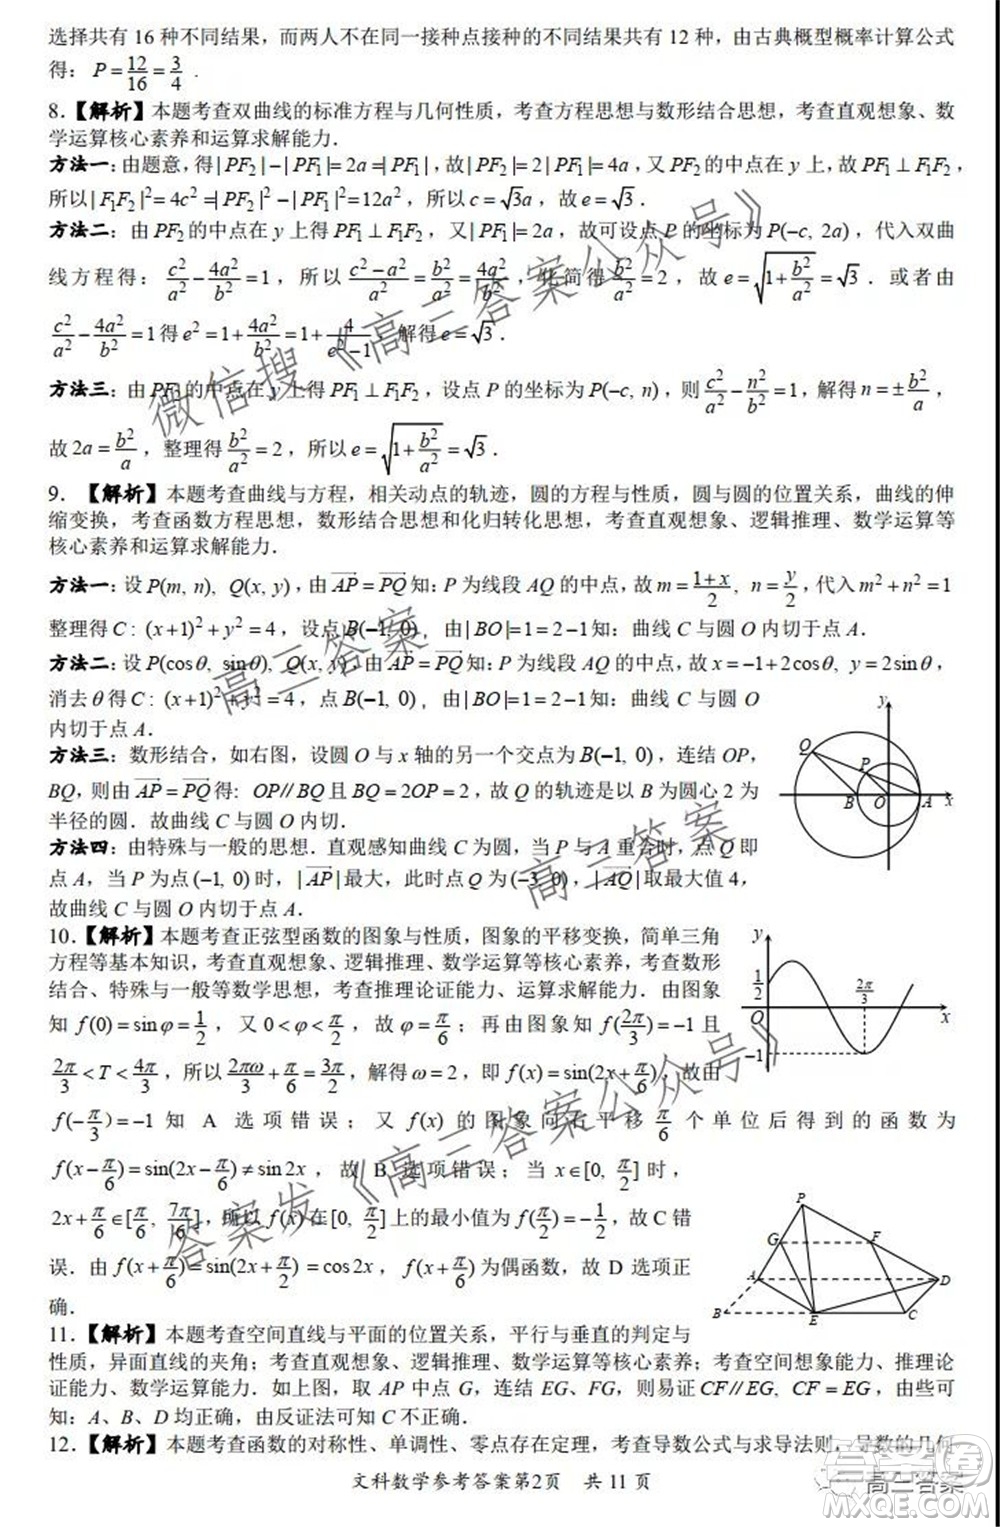 选择共有 16 种不同结果，而两人不在同一接种点接种的不同结果共有 12 种，由古典概型概率计算公式
得：P=12/16=3/4．
8.【解析】本题考查双曲线的标准方程与几何性质，考查方程思想与数形结合思想，考查直观想象、数
学运算核心素养和运算求解能力．
方法一：由题意，得|PF₂|−|PF₁|=2a=|PF₁|，故|PF₂|=2|PF₁|=4a，又PF₂的中点在 y 上，故PF₁⊥F₁F₂，
所以|F₁F₂|²=4c²=|PF₂|²−|PF₁|²=12a²，所以c=√3a，故e=√3．
方法二：由PF₂的中点在y上得PF₁⊥F₁F₂，又|PF₁|=2a，故可设点P的坐标为P(−c, 2a)，代入双曲
线方程得：c²/a²−4a²/b²=1，所以(c²−a²)/a²=b²/a²=4a²/b²，化简得b²/a²=2，故e=√(1+b²/a²)=√3．或者由
c²/a²−4a²/b²=1得e²=1+4a²/b²=1+4/(e²−1)，解得e=√3．
方法三：由PF₂的中点在y上得PF₁⊥F₁F₂，设点P的坐标为P(−c, n)，则c²/a²−n²/b²=1，解得n=±b²/a，
故2a=b²/a，整理得b²/a²=2，所以e=√(1+b²/a²)=√3．
9．【解析】本题考查曲线与方程，相关动点的轨迹，圆的方程与性质，圆与圆的位置关系，曲线的伸
缩变换，考查函数方程思想，数形结合思想和化归转化思想，考查直观想象、逻辑推理、数学运算等
核心素养和运算求解能力．
方法一：设P(m, n)，Q(x, y)，由AP=PQ知：P为线段AQ的中点，故m=(1+x)/2, n=y/2，代入m²+n²=1
整理得C: (x+1)²+y²=4，设点B(−1, 0)，由|BO|=1=2−1知：曲线C与圆O内切于点A．
方法二：设P(cosθ, sinθ)，Q(x, y)，由AP=PQ知：P为线段AQ的中点，故x=−1+2cosθ, y=2sinθ，
消去θ得C: (x+1)²+y²=4，点B(−1, 0)，由|BO|=1=2−1知：曲线C与圆O
内切于点A．
方法三：数形结合，如右图，设圆O与x轴的另一个交点为B(−1, 0)，连结OP，
BQ，则由AP=PQ得：OP∥BQ且BQ=2OP=2，故Q的轨迹是以B为圆心2为
半径的圆．故曲线C与圆O内切．
方法四：由特殊与一般的思想．直观感知曲线C为圆，当P与A重合时，点Q即
点A，当P为点(−1, 0)时，|AP|最大，此时点Q为(−3, 0)，|AQ|取最大值4，
故曲线C与圆O内切于点A．
y
Q
P
B O A x
10.【解析】本题考查正弦型函数的图象与性质，图象的平移变换，简单三角
方程等基本知识，考查直观想象、逻辑推理、数学运算等核心素养，考查数形
结合、特殊与一般等数学思想，考查推理论证能力、运算求解能力．由图象
知f(0)=sinφ=1/2，又0<φ<π/2，故φ=π/6；再由图象知f(2π/3)=−1且
2π/3<T<4π/3，所以2πω/3+π/6=3π/2，解得ω=2，即f(x)=sin(2x+π/6)．故由
f(−π/3)=−1知 A 选项错误；又f(x)的图象向右平移π/6个单位后得到的函数为
f(x−π/6)=sin(2x−π/6)≠sin2x，故B选项错误；当x∈[0, π/2]时，
2x+π/6∈[π/6, 7π/6]，所以f(x)在[0, π/2]上的最小值为f(π/2)=−1/2，故C错
误．由f(x+π/6)=sin(2x+π/2)=cos2x，f(x+π/6)为偶函数，故D选项正
确．
y
1/2
O
2π/3
x
−1
P
G F
A D
B E C
11.【解析】本题考查空间直线与平面的位置关系，平行与垂直的判定与
性质，异面直线的夹角；考查直观想象、逻辑推理、数学运算等核心素养；考查空间想象能力、推理论
证能力、数学运算能力．如上图，取AP中点G，连结EG、FG，则易证CF∥EG, CF=EG，由此可
知：A、B、D均正确，由反证法可知C不正确．
12.【解析】本题考查函数的对称性、单调性、零点存在定理，考查导数公式与求导法则，导数的几何
文科数学参考答案第2页 共 11 页
微信搜《高三答案公众号》
高三答案
高三答案
答案发《高三答案公众号》
高三答案
答案圈
MXQE.COM